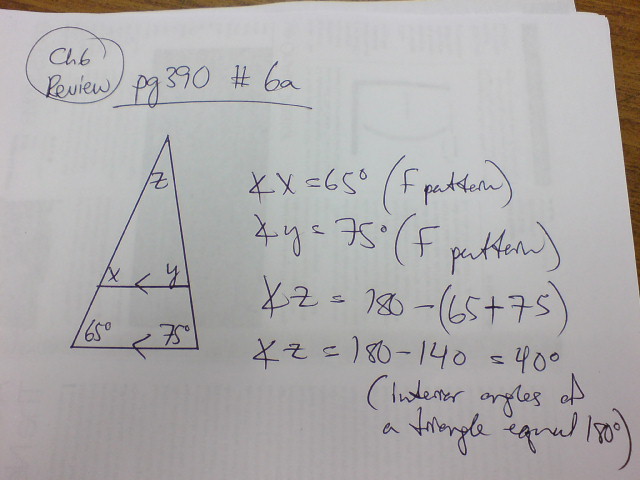 Ch6
Review
pg390 # 6a
z
x
y
65°
75°
∡x = 65° (F pattern)
∡y = 75° (F pattern)
∡z = 180 - (65+75)
∡z = 180 - 140 = 40°
(Interior angles of
a triangle equal 180°)